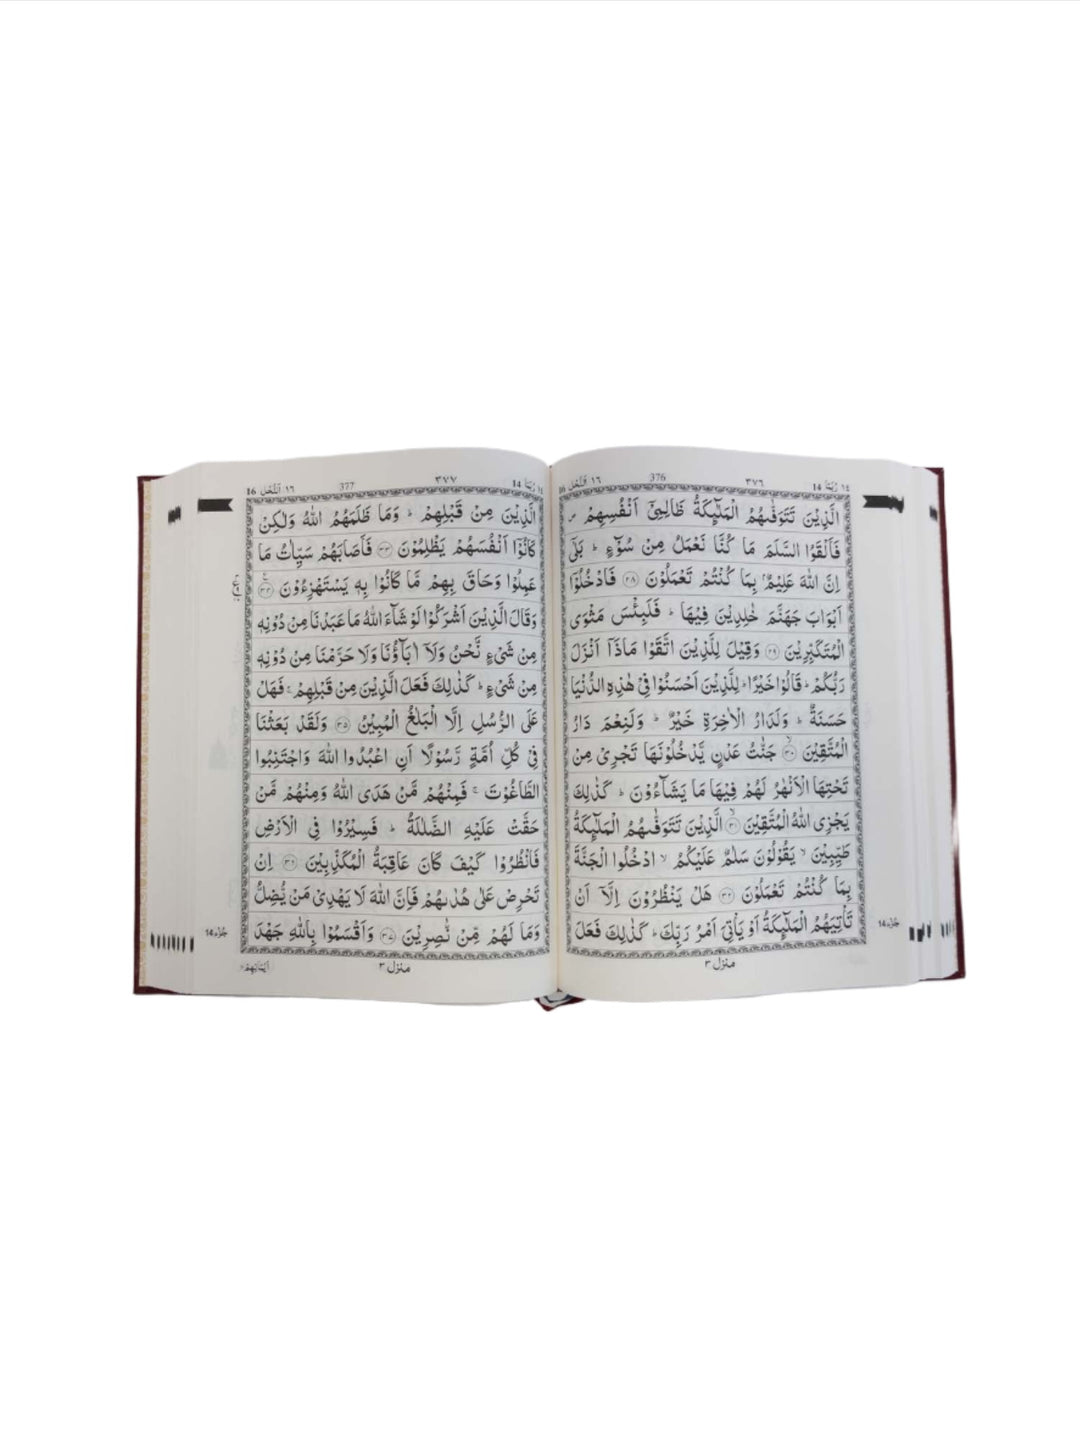 ١٤ رُبَمَا 14
٣٧٦
376
١٦ اَلنَّحْل 16
الَّذِيْنَ تَتَوَفّٰىهُمُ الْمَلٰٓئِكَةُ ظَالِمِىْٓ اَنْفُسِهِمْ ۪
فَاَلْقَوُا السَّلَمَ مَا كُنَّا نَعْمَلُ مِنْ سُوْٓءٍ ؕ بَلٰٓى
اِنَّ اللّٰهَ عَلِيْمٌۢ بِمَا كُنْتُمْ تَعْمَلُوْنَ ﴿۲۸﴾ فَادْخُلُوْٓا
اَبْوَابَ جَهَنَّمَ خٰلِدِيْنَ فِيْهَا ؕ فَلَبِئْسَ مَثْوَى
الْمُتَكَبِّرِيْنَ ﴿۲۹﴾ وَقِيْلَ لِلَّذِيْنَ اتَّقَوْا مَاذَآ اَنْزَلَ
رَبُّكُمْ ؕ قَالُوْا خَيْرًا ؕ لِلَّذِيْنَ اَحْسَنُوْا فِىْ هٰذِهِ الدُّنْيَا
حَسَنَةٌ ؕ وَلَدَارُ الْاٰخِرَةِ خَيْرٌ ؕ وَلَنِعْمَ دَارُ
الْمُتَّقِيْنَ ﴿۳۰﴾ۙ جَنّٰتُ عَدْنٍ يَّدْخُلُوْنَهَا تَجْرِىْ مِنْ
تَحْتِهَا الْاَنْهٰرُ لَهُمْ فِيْهَا مَا يَشَآءُوْنَ ؕ كَذٰلِكَ
يَجْزِى اللّٰهُ الْمُتَّقِيْنَ ﴿۳۱﴾ۙ الَّذِيْنَ تَتَوَفّٰىهُمُ الْمَلٰٓئِكَةُ
طَيِّبِيْنَ ۙ يَقُوْلُوْنَ سَلٰمٌ عَلَيْكُمُ ۙ ادْخُلُوا الْجَنَّةَ
بِمَا كُنْتُمْ تَعْمَلُوْنَ ﴿۳۲﴾ هَلْ يَنْظُرُوْنَ اِلَّآ اَنْ
تَاْتِيَهُمُ الْمَلٰٓئِكَةُ اَوْ يَاْتِىَ اَمْرُ رَبِّكَ ؕ كَذٰلِكَ فَعَلَ
منزل ٣
جُزء 14
١٤ رُبَمَا 14
٣٧٧
377
١٦ اَلنَّحْل 16
الَّذِيْنَ مِنْ قَبْلِهِمْ ؕ وَمَا ظَلَمَهُمُ اللّٰهُ وَلٰكِنْ
كَانُوْٓا اَنْفُسَهُمْ يَظْلِمُوْنَ ﴿۳۳﴾ فَاَصَابَهُمْ سَيِّاٰتُ مَا
عَمِلُوْا وَحَاقَ بِهِمْ مَّا كَانُوْا بِهٖ يَسْتَهْزِءُوْنَ ﴿۳۴﴾
وَقَالَ الَّذِيْنَ اَشْرَكُوْا لَوْ شَآءَ اللّٰهُ مَا عَبَدْنَا مِنْ دُوْنِهٖ
مِنْ شَىْءٍ نَّحْنُ وَلَآ اٰبَآؤُنَا وَلَا حَرَّمْنَا مِنْ دُوْنِهٖ
مِنْ شَىْءٍ ؕ كَذٰلِكَ فَعَلَ الَّذِيْنَ مِنْ قَبْلِهِمْ ۚ فَهَلْ
عَلَى الرُّسُلِ اِلَّا الْبَلٰغُ الْمُبِيْنُ ﴿۳۵﴾ وَلَقَدْ بَعَثْنَا
فِىْ كُلِّ اُمَّةٍ رَّسُوْلًا اَنِ اعْبُدُوا اللّٰهَ وَاجْتَنِبُوا
الطَّاغُوْتَ ۚ فَمِنْهُمْ مَّنْ هَدَى اللّٰهُ وَمِنْهُمْ مَّنْ
حَقَّتْ عَلَيْهِ الضَّلٰلَةُ ؕ فَسِيْرُوْا فِى الْاَرْضِ
فَانْظُرُوْا كَيْفَ كَانَ عَاقِبَةُ الْمُكَذِّبِيْنَ ﴿۳۶﴾ اِنْ
تَحْرِصْ عَلٰى هُدٰىهُمْ فَاِنَّ اللّٰهَ لَا يَهْدِىْ مَنْ يُّضِلُّ
وَمَا لَهُمْ مِّنْ نّٰصِرِيْنَ ﴿۳۷﴾ وَاَقْسَمُوْا بِاللّٰهِ جَهْدَ
منزل ٣
اَيْمَانِهِمْ ۙ
جُزء 14